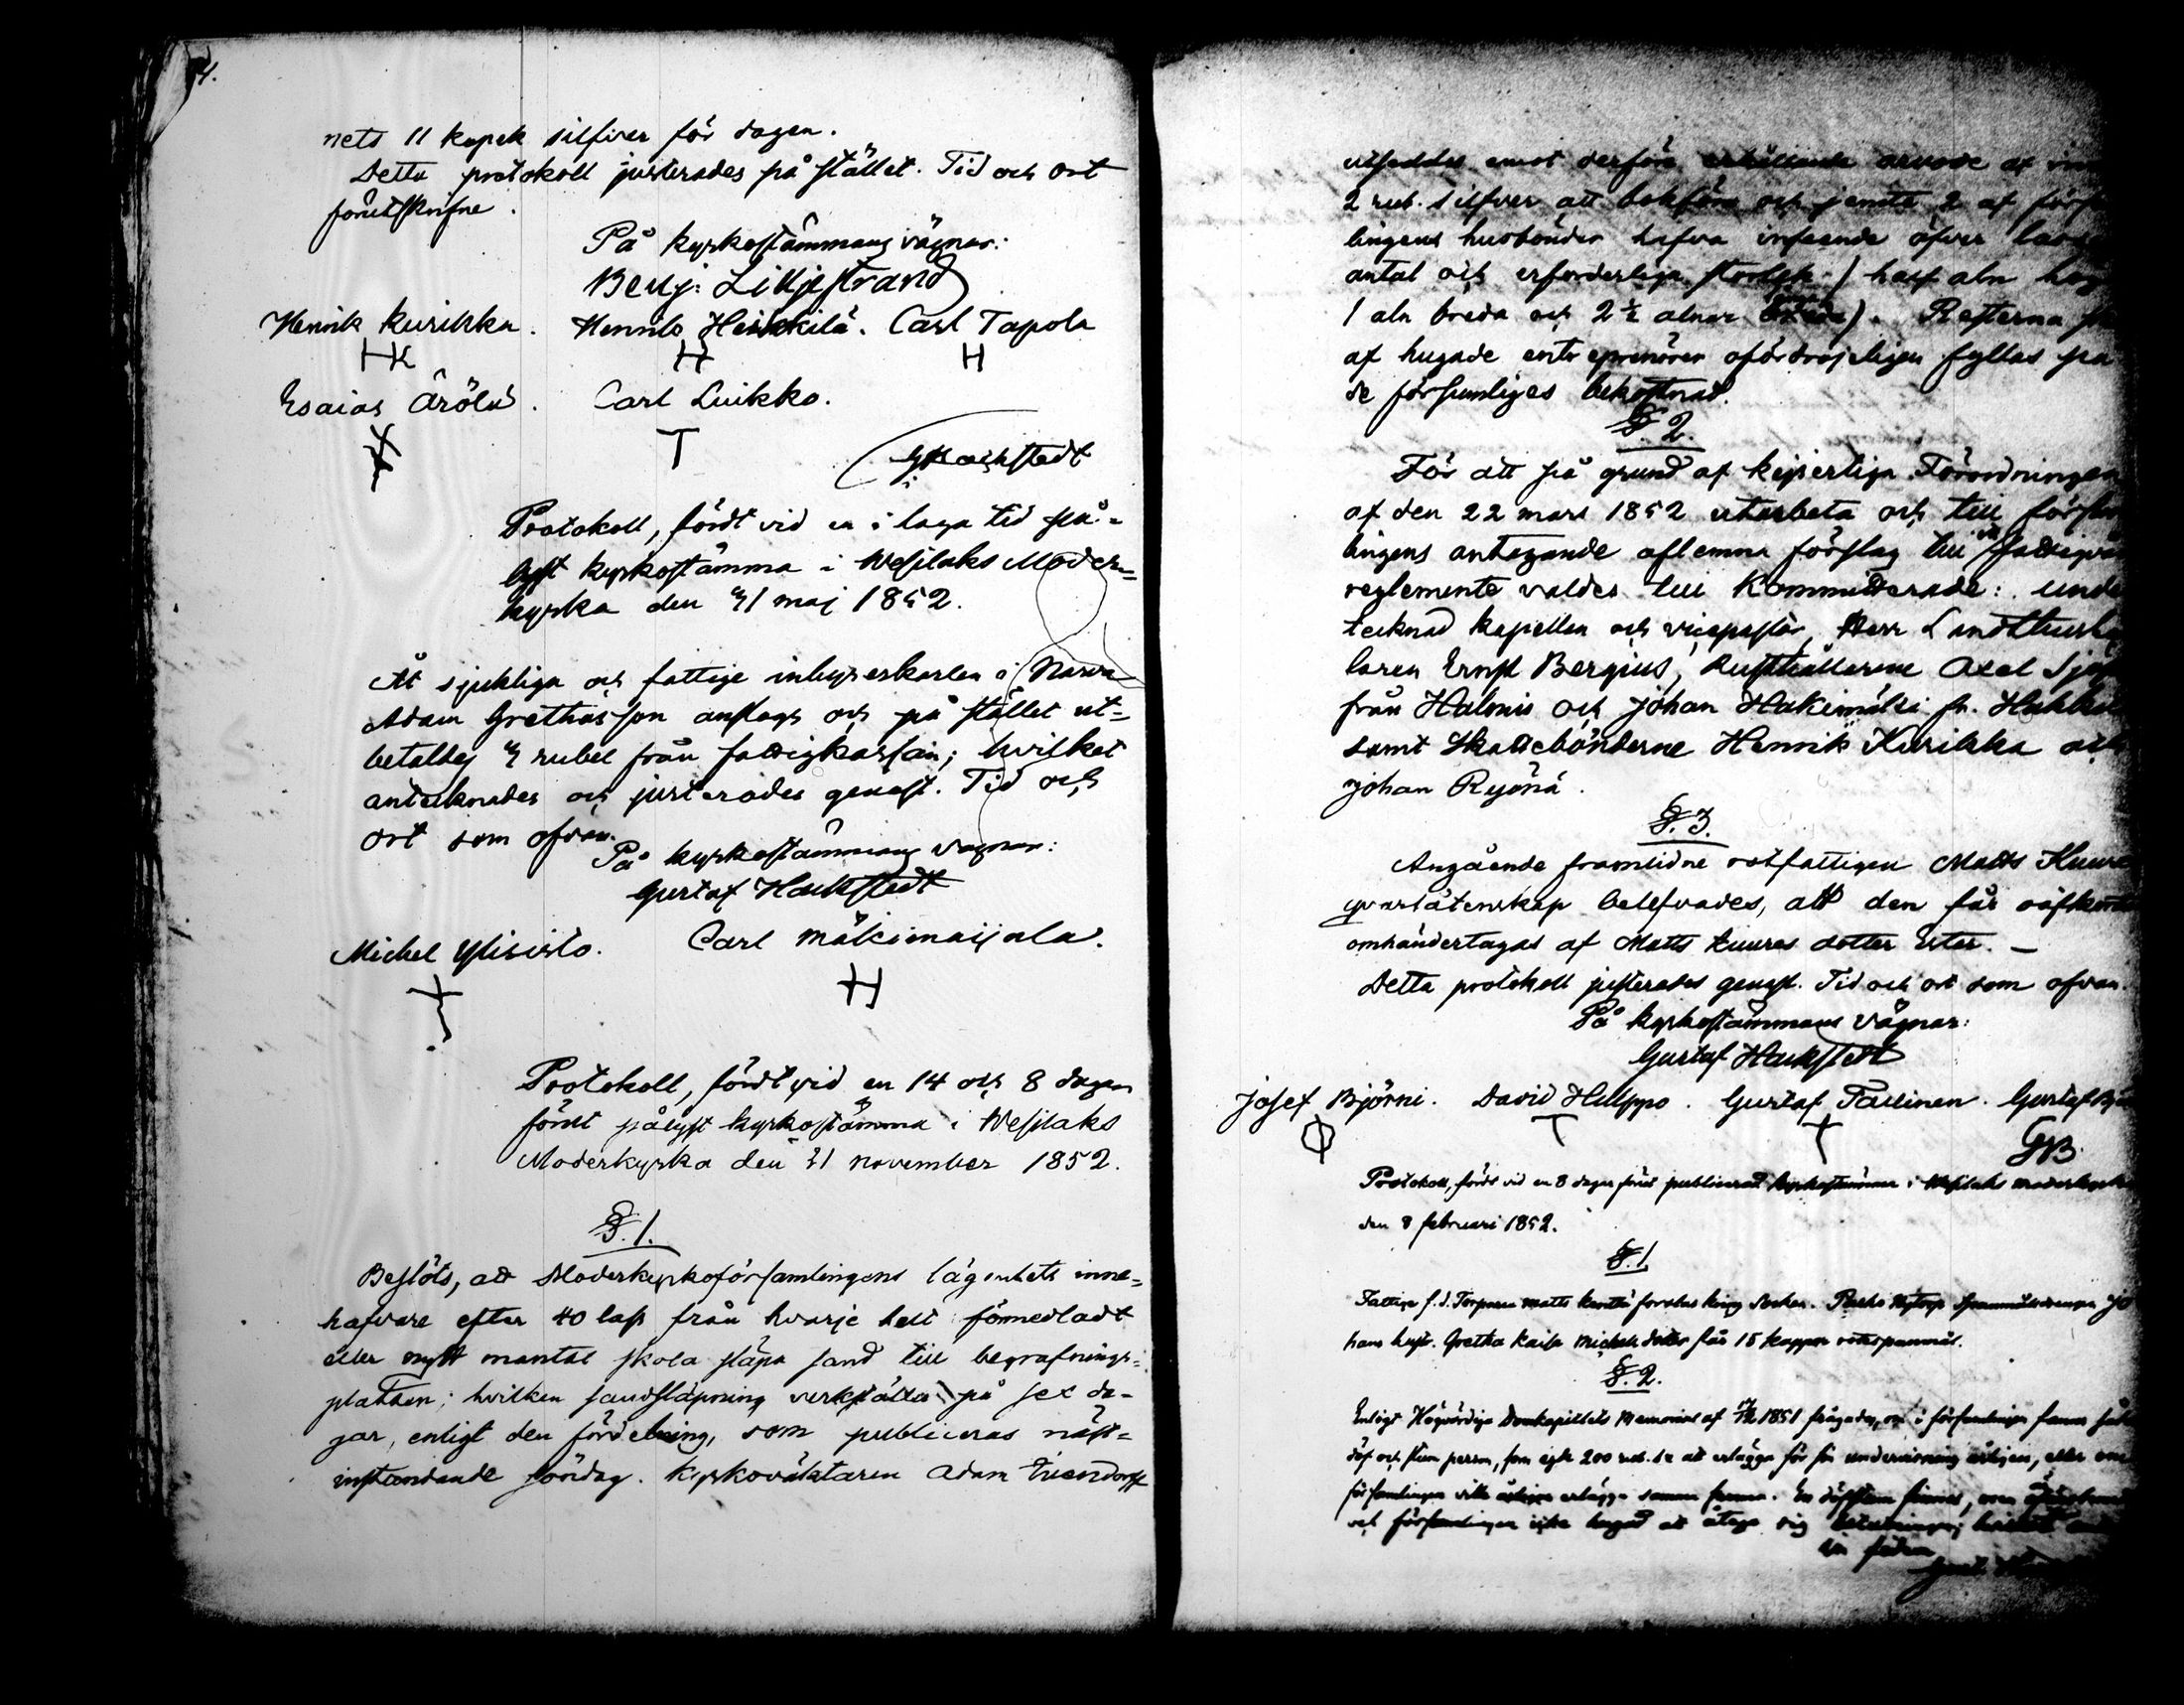 4.
nets 11 kopek silfver för dagen.
Detta protokoll justerades på stället. Tid och ort
förutskrifne.
På kyrkostämmans vägnar:
Benj: Lilljestrand
Henrik Kurikka. Henrik Heikkilä. Carl Tapola
HK H H
Esaias Ärölä. Carl Luikko.
T
GHackstedt
Protokoll, fördt vid en i laga tid på-
lyst kyrkostämma i Wesilaks Moder-
kyrka den 31 maj 1852.
Åt sjukliga och fattige inhyseskarlen i Narva
Adam Grethasson anslogs och på stället ut-
betaltes 3 rubel från fattigkassan; hvilket
antecknades och justerades genast. Tid och
ort som ofvan.
På kyrkostämmans vägnar:
Gustaf Hackstedt
Michel Ylisisto. Carl Mäkimaijala.
H
Protokoll, fördt vid en 14 och 8 dagar
förut pålyst kyrkostämma i Wesilaks
Moderkyrka den 21 november 1852.
§. 1.
Beslöts, att Moderkyrkoförsamlingens lägenhets inne-
hafvare efter 40 lass från hvarje helt förmedladt
eller nytt mantal skola släpa sand till begrafnings-
platsen; hvilken sandsläpning verkställes på sex da-
gar, enligt den fördelning, som publiceras näst-
instundande söndag. Kyrkoväktaren Adam Friendorff
utseddes emot derföre erhållande arvode af
2 rub. silfver att bokföra och jemte 2 af förs
lingens husbönder hafva inseende öfver lass
antal och erforderliga storlek (half aln hög
1 aln breda och 2½ alnar långa). Resterna
af hugade entreprenörer ofördröjeligen fyllas på
de försumliges bekostnad.
§. 2.
För att på grund af kejserliga Förordningen
af den 22 mars 1852 utarbeta och till försam
lingens antagande aflemna förslag till fattigvår
reglemente valdes till Kommitterade: unde
tecknad kapellan och vicepastor, Herr Landthush
laren Ernst Bergius, Rusthållarene Axel Sjö
från Halmis och Johan Hakimäki fr.
samt Skattebönderne Henrik Kurikka och
Johan Ryönä.
§. 3.
Angående framlidne rotfattigen Matts Kuure
qvarlåtenskap belefvades, att den får oafkortad
omhändertagas af Matts Kuures dotter Ester. —
Detta protokoll justerades genast. Tid och ort som ofvan.
På kyrkostämmans vägnar:
Gustaf Hackstedt
Josef Björni. David Hulppo. Gustaf Tallinen. Gustaf Bjö
T GB.
Protokoll, fördt vid en 8 dagar förut publicerad kyrkostämma i Wesilaks moderkyrka
den 8 februari 1852.
§. 1
Fattige f.d. Torparen Matts kring Socken.
hans hust. Gretha Kaisa Michelsdotter får 15 kappar rotespannmål.
§. 2.
Enligt Högvördiga Domkapitlets Memorial af 1851 frågades, om i församlingen fanns
döf och stum person, som egde 200 rub. Sr att erlägga för sin undervisning årligen, eller om
församlingen ville årligen erlägga samma summa. En döfstum finnes, men
och församlingen icke hugad att åtaga sig
In fidem